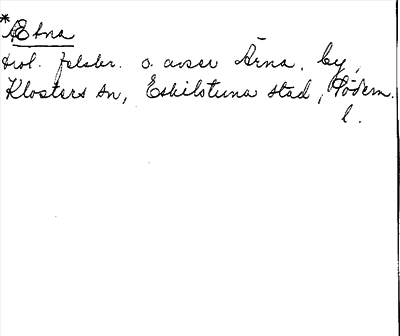 *
Æhna
trol. felskr. o. avser Ärna, by,
Klosters sn, Eskilstuna stad, Söderm.
l.